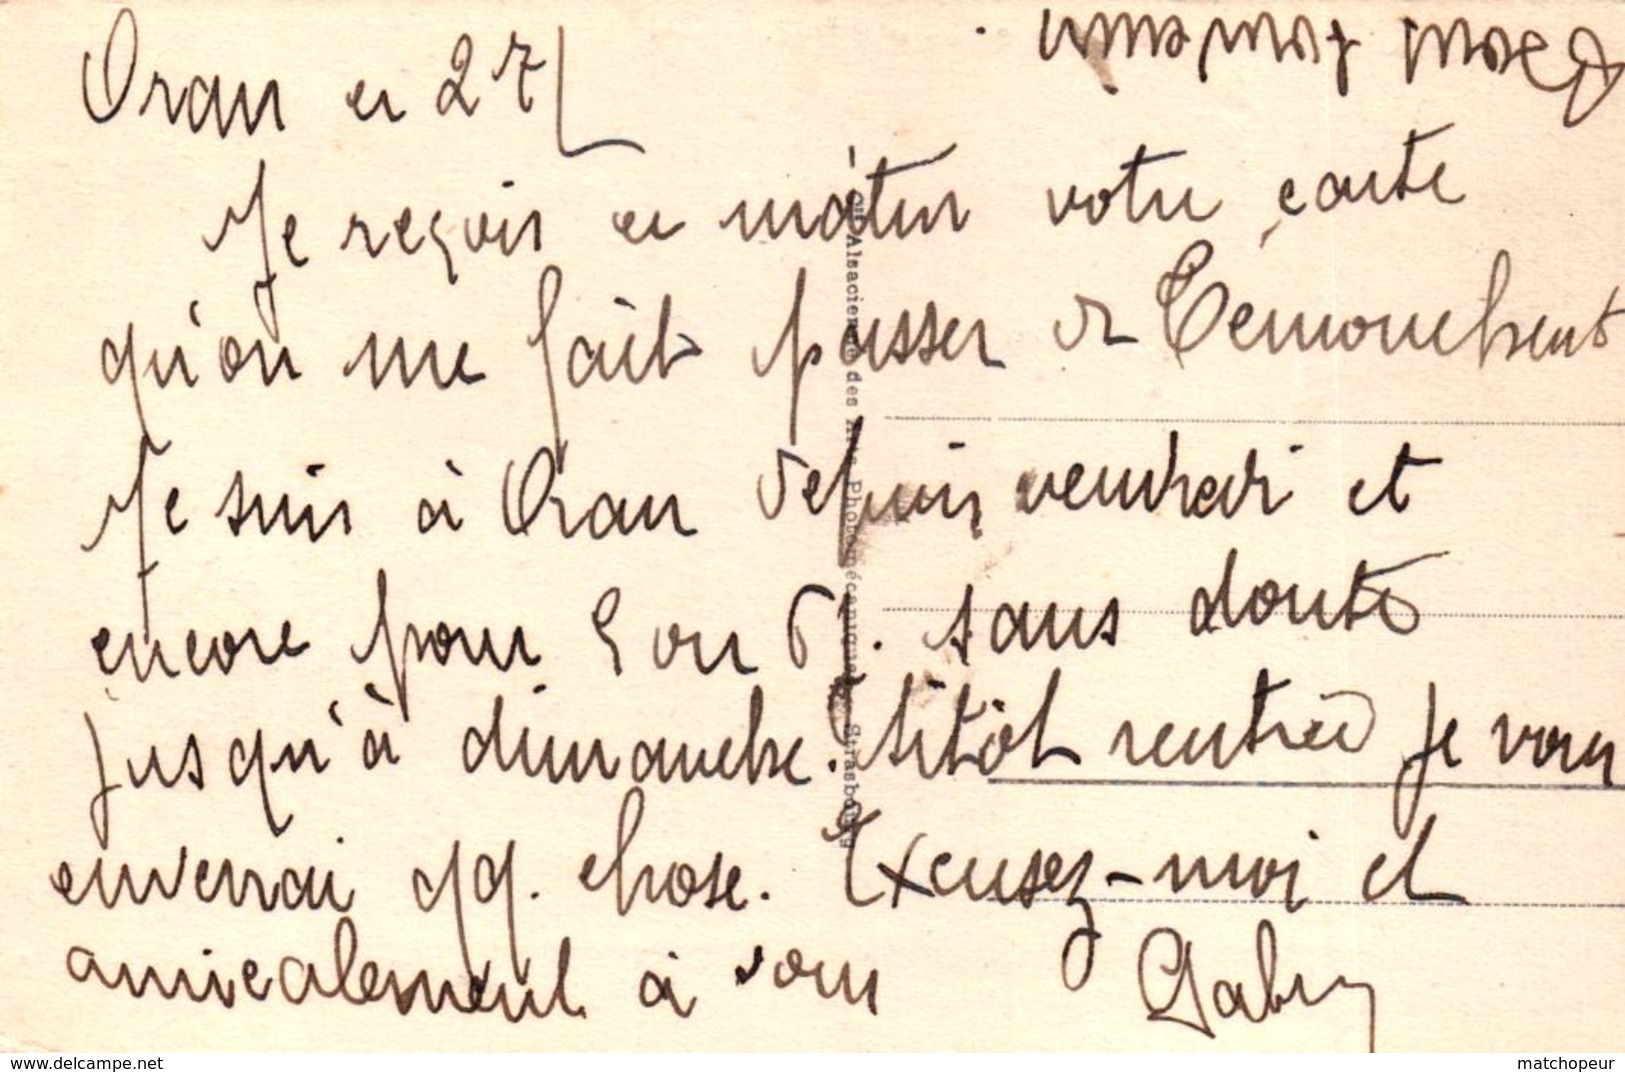 Oran ce 27
Je reçois ce matin votre carte
qu'on me fait passer de Témouchent
Je suis à Oran depuis vendredi et
encore pour 5 ou 6 j. sans doute
jusqu'à dimanche. Sitôt rentrée je vous
enverrai qq. chose. Excusez-moi et
amicalement à vous Gaby
Cie Alsacienne des Arts Photomécaniques - Strasbourg
www.delcampe.net
matchopeur